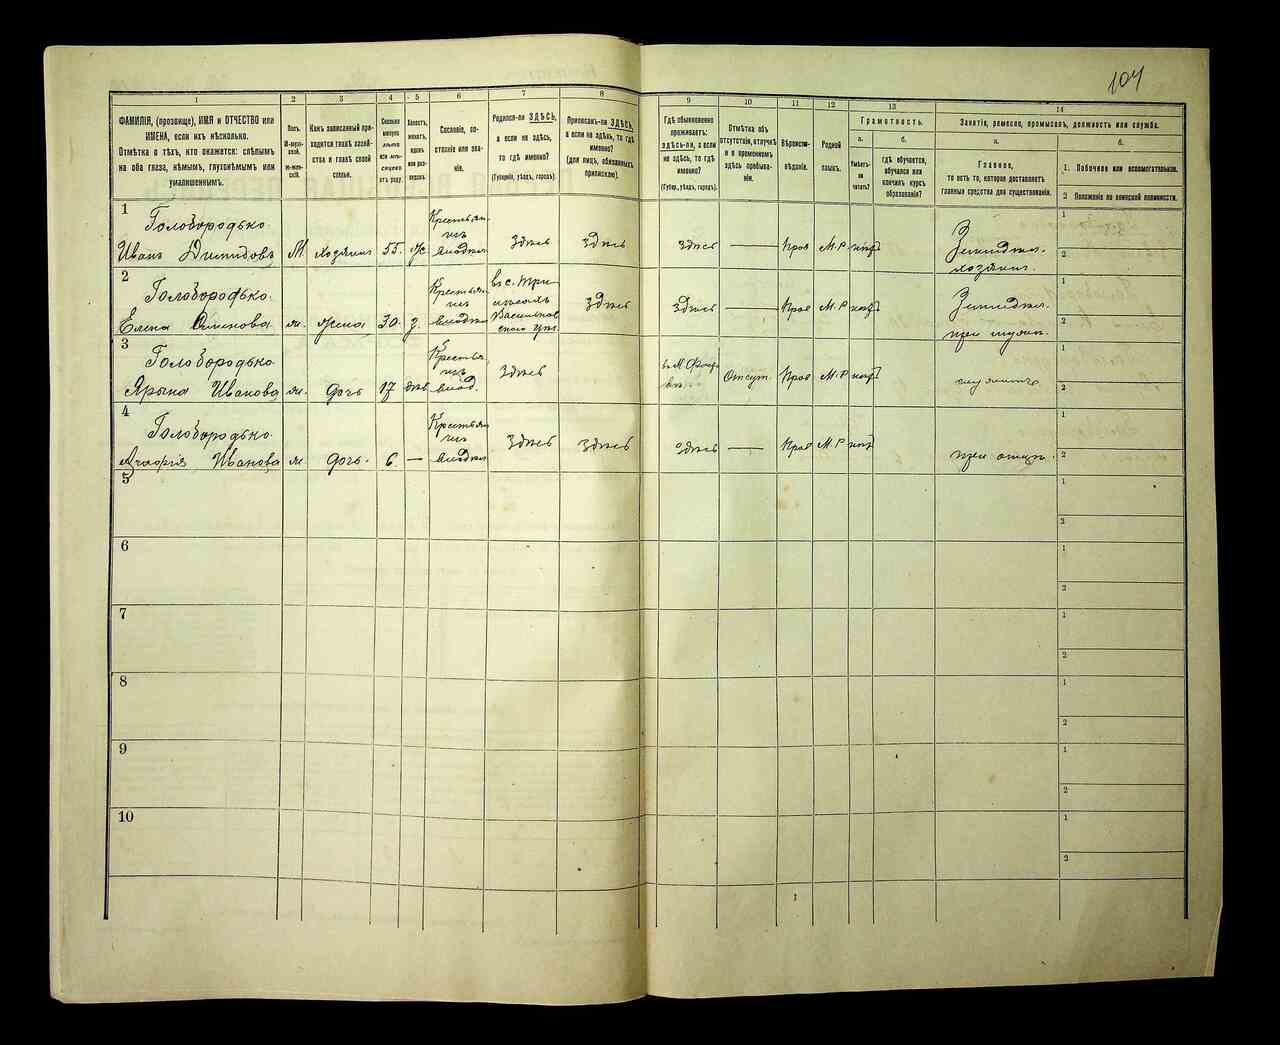 104
1
2
3
4
5
6
7
8
9
10
11
12
13
14
ФАМИЛІЯ, (прозвище), ИМЯ и ОТЧЕСТВО или
ИМЕНА, если ихъ нѣсколько.
Отмѣтка о тѣхъ, кто окажется: слѣпымъ
на оба глаза, нѣмымъ, глухонѣмымъ или
умалишеннымъ.
Полъ.
М-муж-
ской.
Ж-жен-
скій.
Какъ записанный при-
ходится главѣ хозяй-
ства и главѣ своей
семьи.
Сколько
минуло
лѣтъ
или мѣ-
сяцевъ
отъ роду.
Холостъ,
женатъ,
вдовъ
или раз-
веденъ.
Сословіе, со-
стояніе или зва-
ніе.
Родился-ли ЗДѢСЬ,
а если не здѣсь,
то гдѣ именно?
(Губернія, уѣздъ, городъ).
Приписанъ-ли ЗДѢСЬ,
а если не здѣсь, то гдѣ
именно?
(для лицъ, обязанныхъ
припискою).
Гдѣ обыкновенно
проживаетъ:
ЗДѢСЬ-ли, а если
не здѣсь, то гдѣ
именно?
(Губер., уѣздъ, городъ).
Отмѣтка объ
отсутствіи, отлучкѣ
и о временномъ
здѣсь пребыва-
ніи.
Вѣроиспо-
вѣданіе.
Родной
языкъ.
Грамотность.
а.
Умѣетъ-
ли
читать?
б.
гдѣ обучается,
обучался или
кончилъ курсъ
образованія?
Занятіе, ремесло, промыселъ, должность или служба.
а.
Главное,
то есть то, которое доставляетъ
главныя средства для существованія.
б.
1. Побочное или вспомогательное.
2 Положеніе по воинской повинности.
1
Голобородько
Иванъ Димидовъ М. хозяинъ 55. Ж. Крестьян. Здѣсь Здѣсь Здѣсь — Прав М.Р
1
2
хозяинъ
2
Голобородько
Елена Семенова ж. жена 30. З. Здѣсь Здѣсь — Прав М.Р
1
2
3
Голобородько
Ярына Иванова ж. дочь 17 дѣв Здѣсь Отсут. Прав М.Р
1
2
4
Голобородько
Иванова ж дочь. 6. — Здѣсь Здѣсь Здѣсь — Прав М.Р
при отцѣ.
1
2
5
1
2
6
1
2
7
1
2
8
1
2
9
1
2
10
1
2